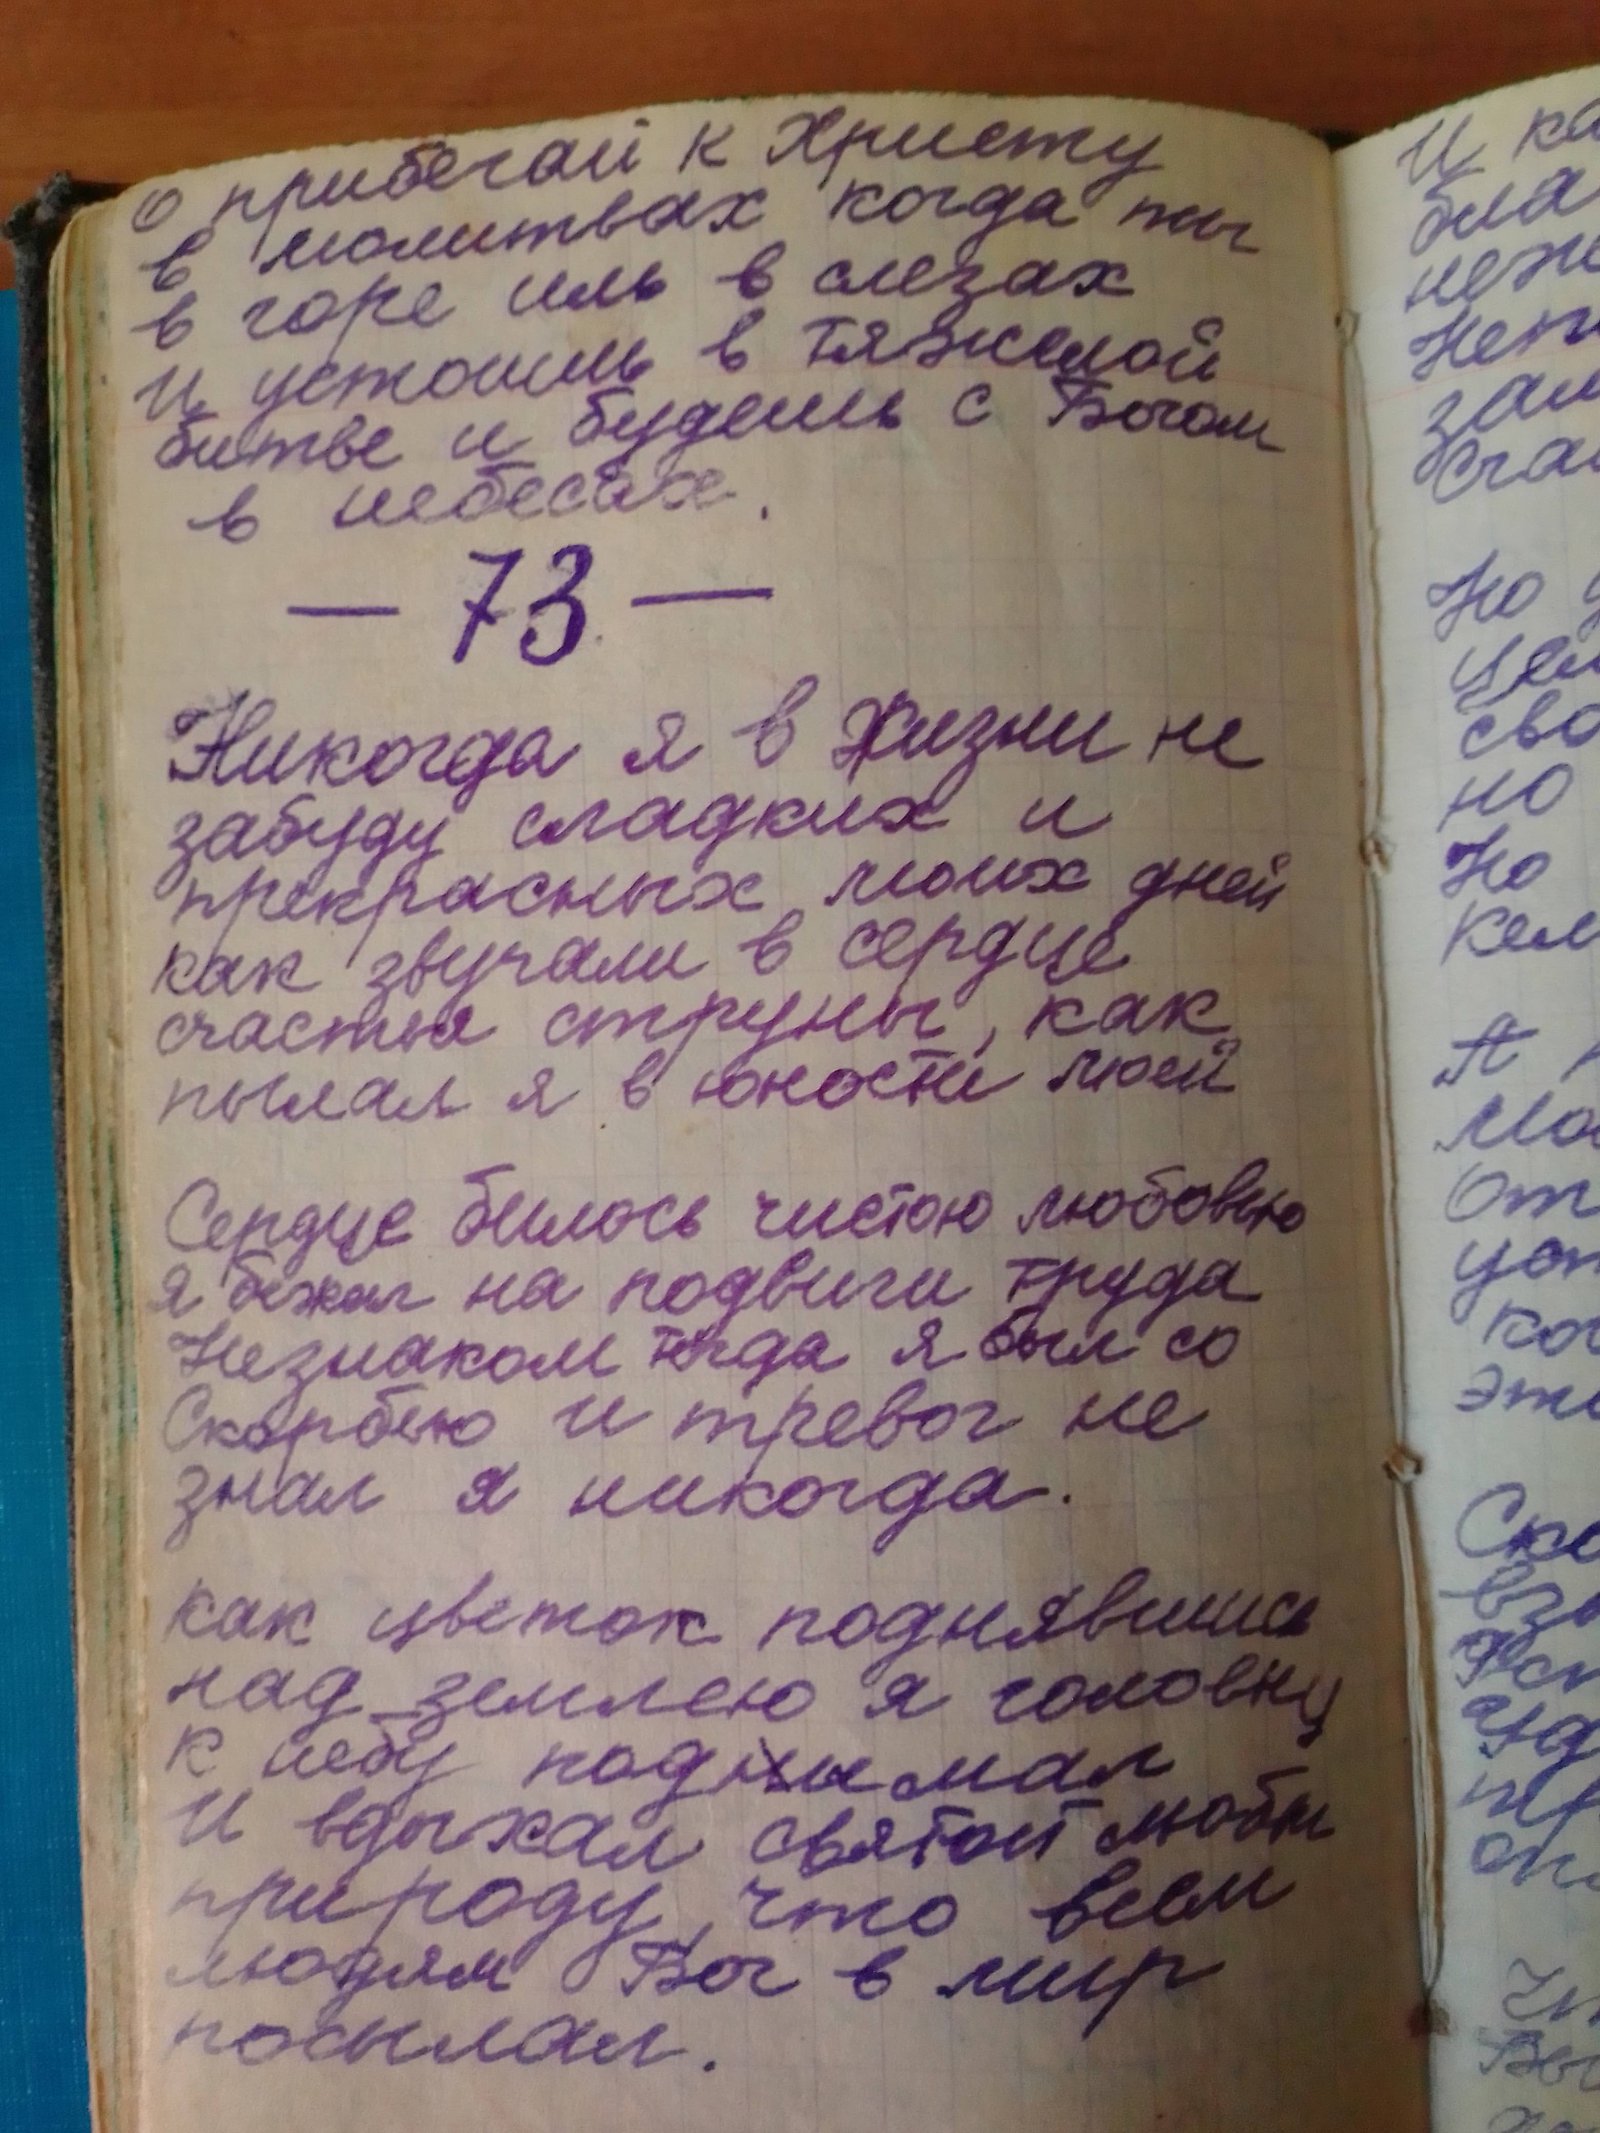 О прибегай к Христу
в молитвах когда ты
в горе иль в слезах
и устоишь в тяжелой
битве и будешь с Богом
в небесах.
— 73 —
Никогда я в жизни не
забуду сладких и
прекрасных моих дней
как звучали в сердце
счастья струны, как
пылал я в юности моей
Сердце билось чистою любовью
я бежал на подвиги труда
Незнаком тогда я был со
Скорбью и тревог не
знал я никогда.
как цветок поднявшись
над землею я головку
к небу поднимал
И вдыхал святой любви
природу, что всем
людям Бог в мир
посылал.
И
Но
сво
но
Но
А
От